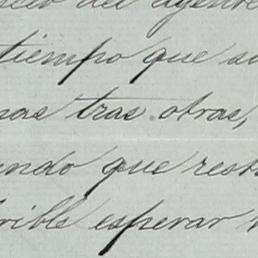 del agente
tiempo que su
nas tras otras,
ando que rest
rible esperar